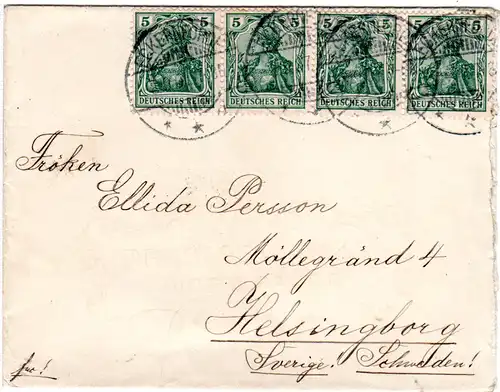 5 5 5 5 5 5 5 5
DEUTSCHES REICH DEUTSCHES REICH DEUTSCHES REICH DEUTSCHES REICH
Fröken
Ellida Persson
Möllegränd 4
Helsingborg
Sverige. Schweden!